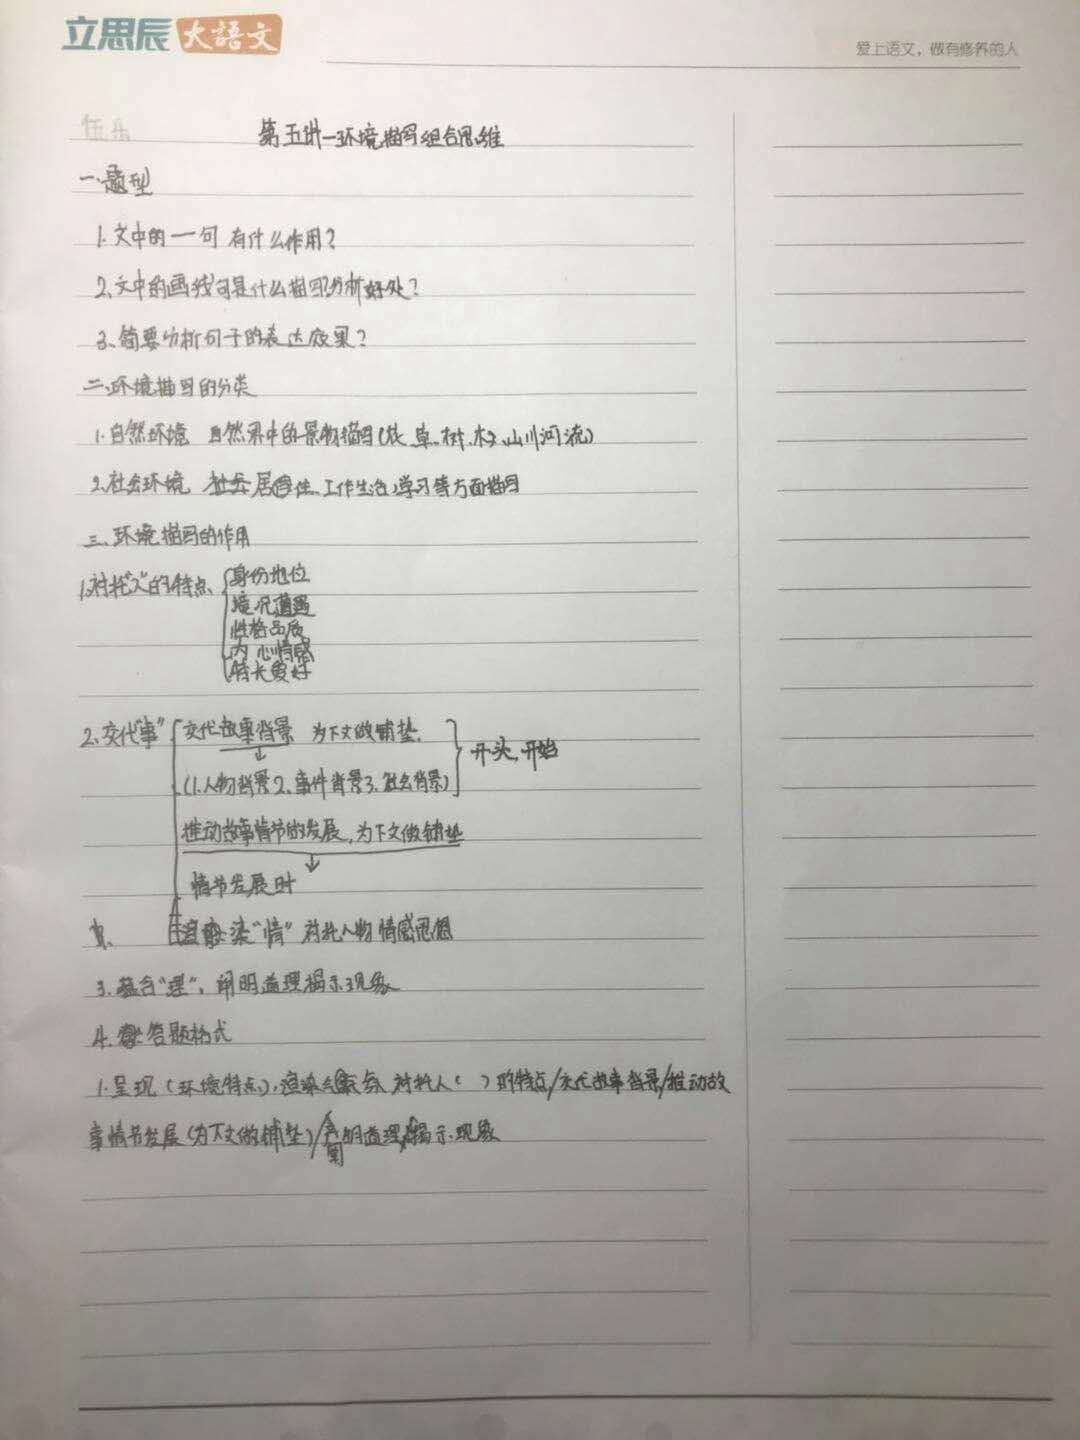 立思辰大语文
爱上语文，做有修养的人
伍乐
第五讲—环境描写组合思维
一.题型
1.文中的一句 有什么作用？
2.文中的画线句是什么描写分析好处？
3.简要分析句子的表达效果？
二.环境描写的分类
1.自然环境 自然界中的景物描写(花、草、树、木、山川河流)
2.社会环境 社会居住、工作生活、学习等方面描写
三.环境描写的作用
1.衬托"人"的特点
身份地位
境况遭遇
性格品质
内心情感
特长爱好
2.交代"事"
交代故事背景 为下文做铺垫.
(1.人物背景2.事件背景3.社会背景)
开头,开始
推动故事情节的发展,为下文做铺垫
情节发展时
渲染"情" 衬托人物情感思想
3.蕴含"理"，阐明道理揭示现象
4.答题格式
1.呈现(环境特点),渲染气氛 衬托人( )的特点/交代故事背景/推动故
事情节发展(为下文做铺垫)/阐明道理,揭示现象